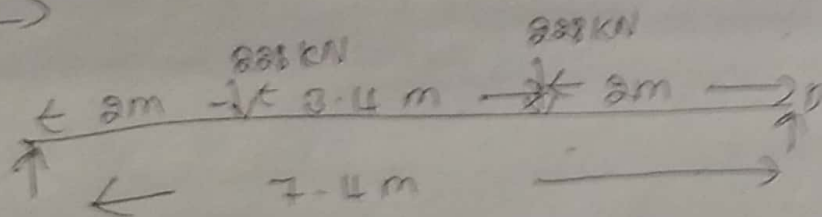 228 KN 228 KN
2m 3.4 m 2m
7.4 m